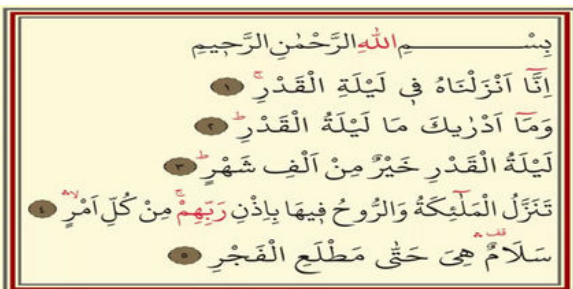 بِسْــــــــــــمِ اللّٰهِ الرَّحْمٰنِ الرَّح۪يمِ
اِنَّٓا اَنْزَلْنَاهُ ف۪ي لَيْلَةِ الْقَدْرِۚ ﴿١﴾
وَمَٓا اَدْرٰيكَ مَا لَيْلَةُ الْقَدْرِۜ ﴿٢﴾
لَيْلَةُ الْقَدْرِ خَيْرٌ مِنْ اَلْفِ شَهْرٍۜ ﴿٣﴾
تَنَزَّلُ الْمَلٰٓئِكَةُ وَالرُّوحُ ف۪يهَا بِاِذْنِ رَبِّهِمْۚ مِنْ كُلِّ اَمْرٍۙۛ ﴿٤﴾
سَلَامٌ۠ۛ هِيَ حَتّٰى مَطْلَعِ الْفَجْرِ ﴿٥﴾